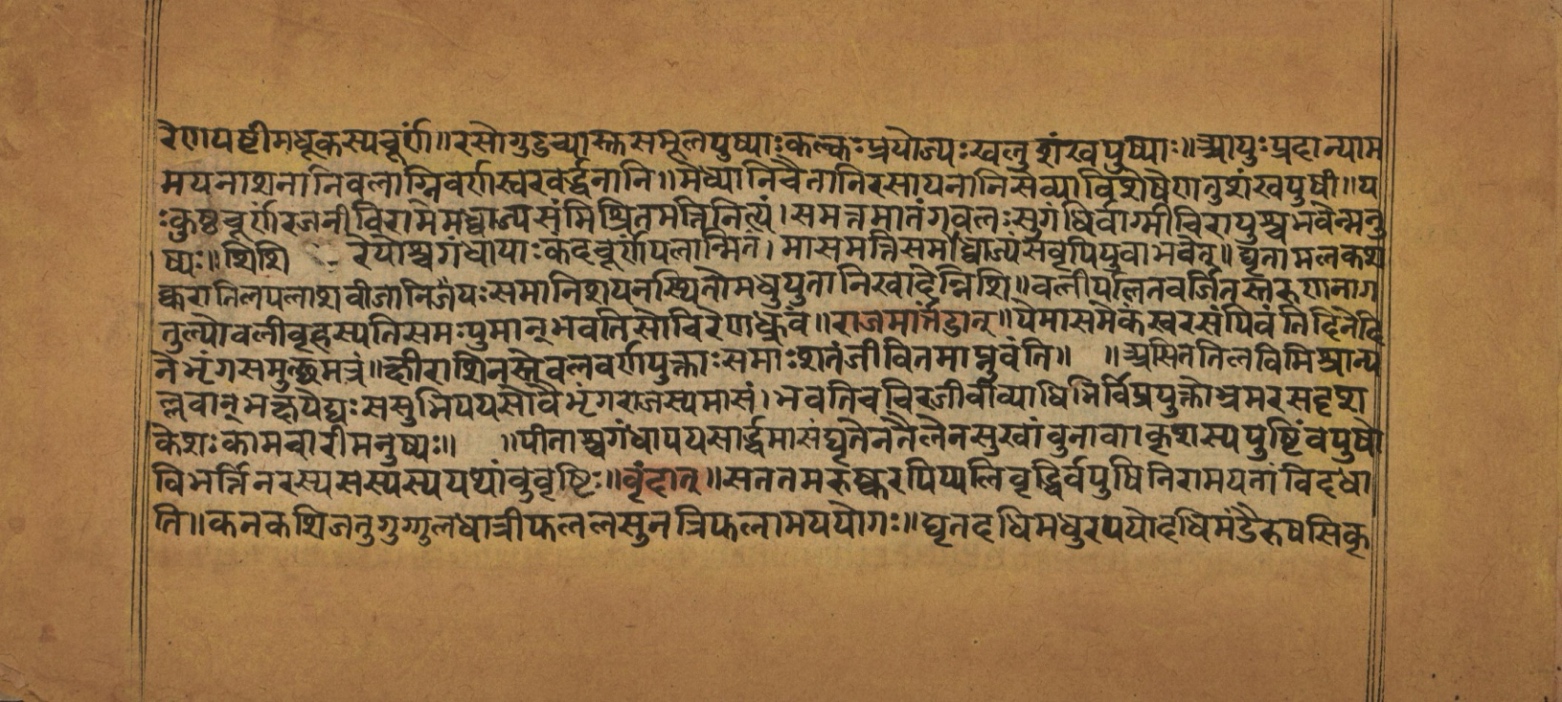 रेणयष्टीमधूकस्यचूर्णं॥रसोगुडुच्यास्तसमूलपुष्याःकल्कःप्रयोज्यःखलुशंखपुष्याः॥आयुःप्रदान्याम
मयनाशनानिवलाग्निवर्णस्वरवर्द्धनानि॥मेध्यानिचैतानिरसायनानिसेव्याविशेषेणतुशंखपुषी॥य
ःकुष्टचूर्णंरजनीविरामेमध्वाज्यसंमिश्रितमत्तिनित्यं।समत्तमातंगवलःसुगंधिर्वाग्मीचिरायुश्चभवेन्मनु
ष्यः॥शिशिरेयोश्वगंधायाःकदचूर्णंपलान्मितं।मासमत्तिसमध्वाज्यंसवृषिपुवाभवेत्॥घृतामलकश
र्करातिलपलाशवीजानिजेयःसमानिशयनस्थितोमधुयुतानिखादेन्निशि॥वलीपलितवर्जितस्तरुणनाग
तुल्योवलीबृहस्पतिसमःपुमान्भवतिसोचिरेणध्रुवं॥राजमार्तंडात्॥येमासमेकंस्वरसंपिवंतिदिनेदि
नेभृंगसमुत्थमत्रं॥क्षीराशिनस्तेवलवर्णयुक्ताःसमाःशतंजीवितमाप्नुवंति॥ ॥असिततिलविमिश्रान्प
ल्लवान्भक्षयेद्यःससुभिपयसोवैभृंगराजस्यमासं।भवतिचचिरजीवीव्याधिभिर्विप्रयुक्तोभ्रमरसदृश
केशःकामचारीमनुष्यः॥ ॥पीताश्वगंधापयसार्द्धमासंघृतेनतैलेनसुखांवुनावा।कृशस्यपुष्टिंवपुषो
विभर्त्तिनरस्यसस्यस्ययथांवुवृष्टिः॥वृंदात्॥सततमरुष्करपिप्पलिवृद्धिर्वपुषिनिरामयतांविदधा
ति॥कनकशिजतुगुग्गुलधात्रीफललसुनत्रिफलामययोगः॥घृतदधिमधुरपयोदधिमंडैरुषसिकृ